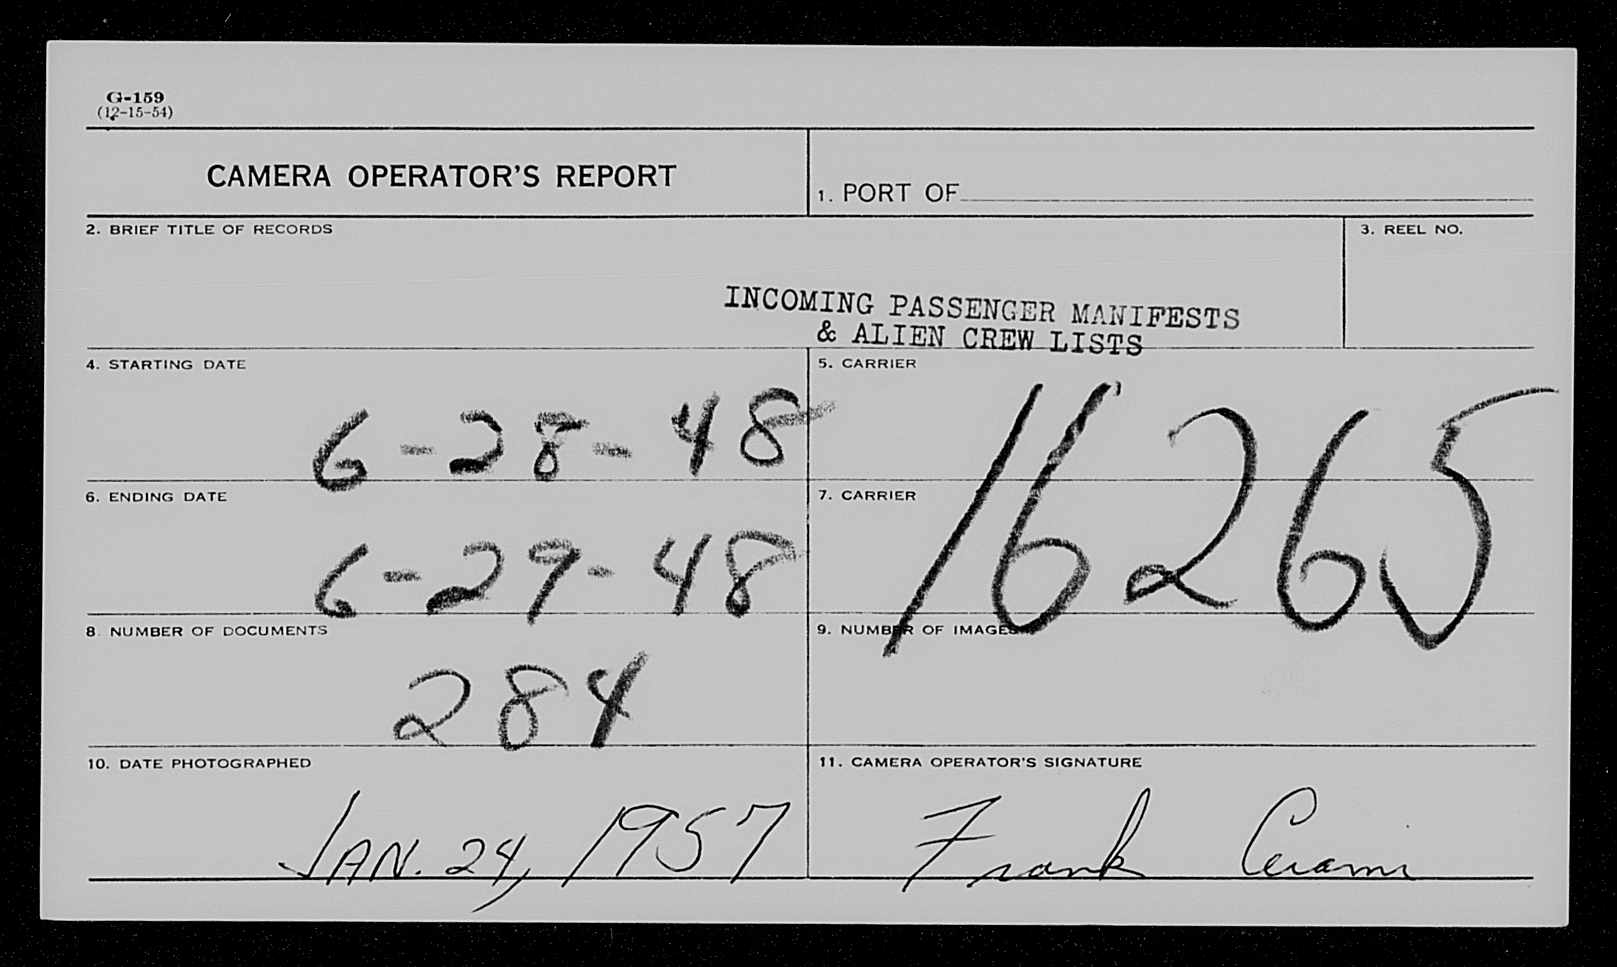 G-159
(12-15-54)
CAMERA OPERATOR'S REPORT
1. PORT OF
2. BRIEF TITLE OF RECORDS
3. REEL NO.
INCOMING PASSENGER MANIFESTS
& ALIEN CREW LISTS
4. STARTING DATE
6-28-48
5. CARRIER
16265
6. ENDING DATE
6-29-48
7. CARRIER
8. NUMBER OF DOCUMENTS
284
9. NUMBER OF IMAGES
10. DATE PHOTOGRAPHED
JAN. 24, 1957
11. CAMERA OPERATOR'S SIGNATURE
Frank Cerami